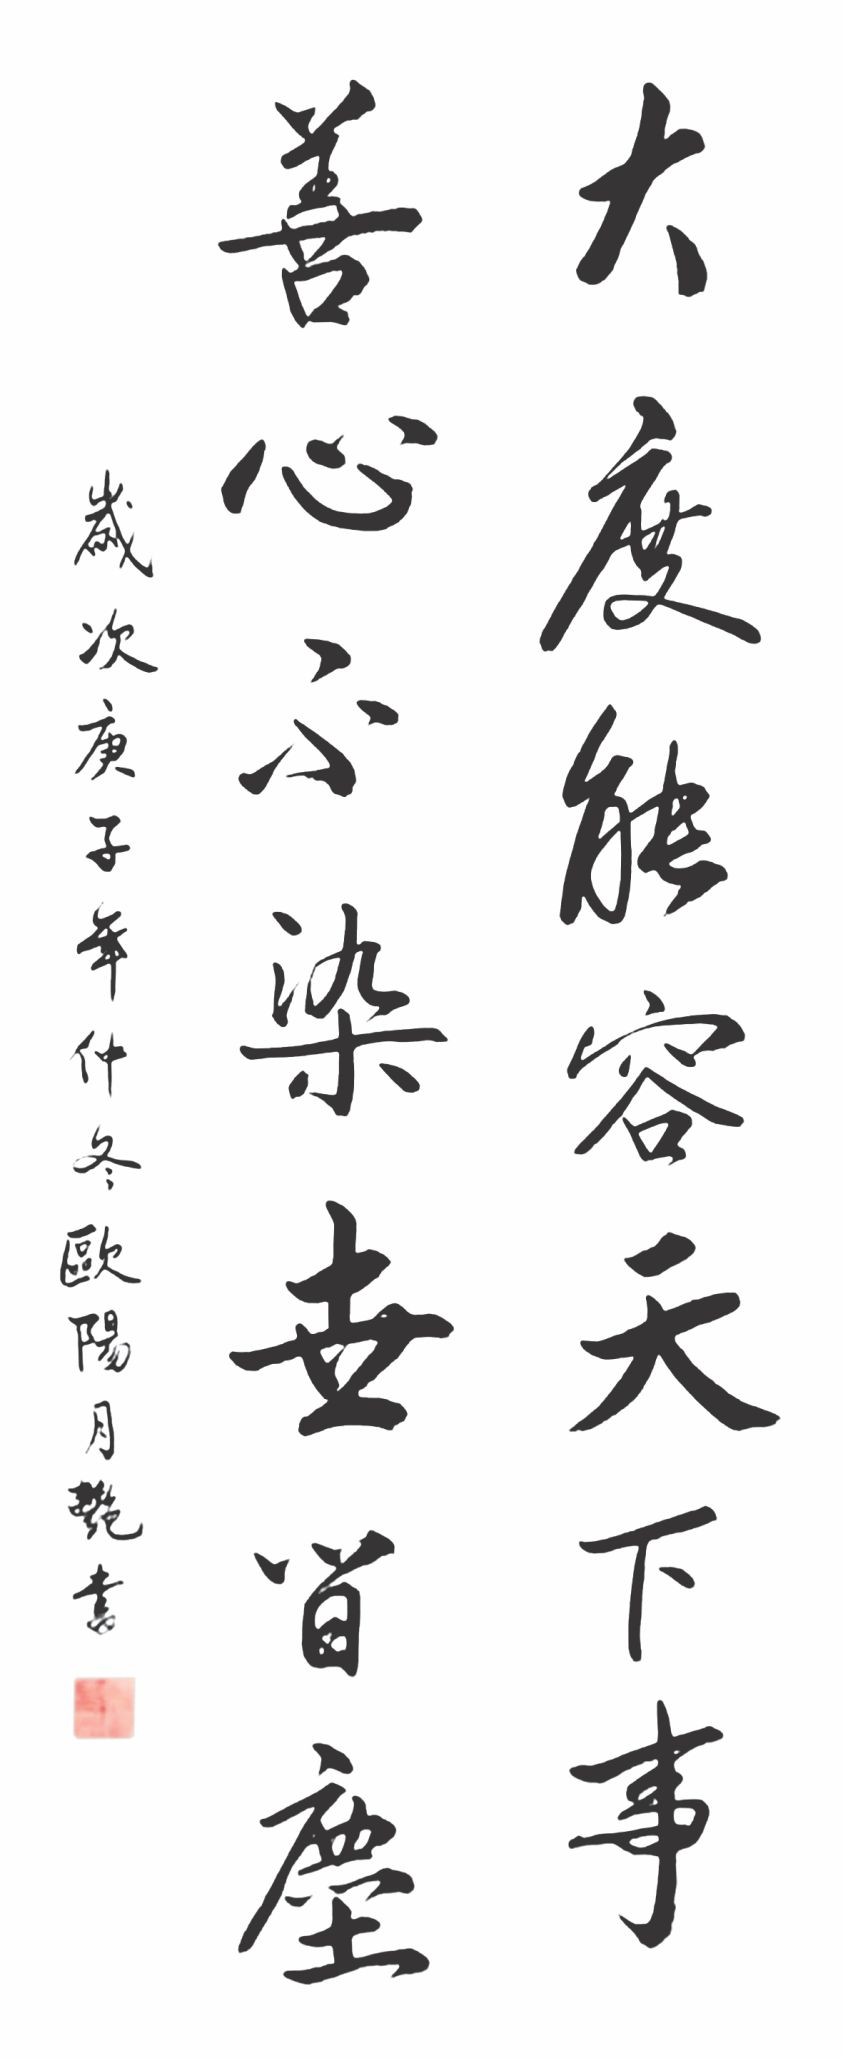 大度能容天下事
善心不染世間塵
歲次庚子年仲冬歐陽月艷書